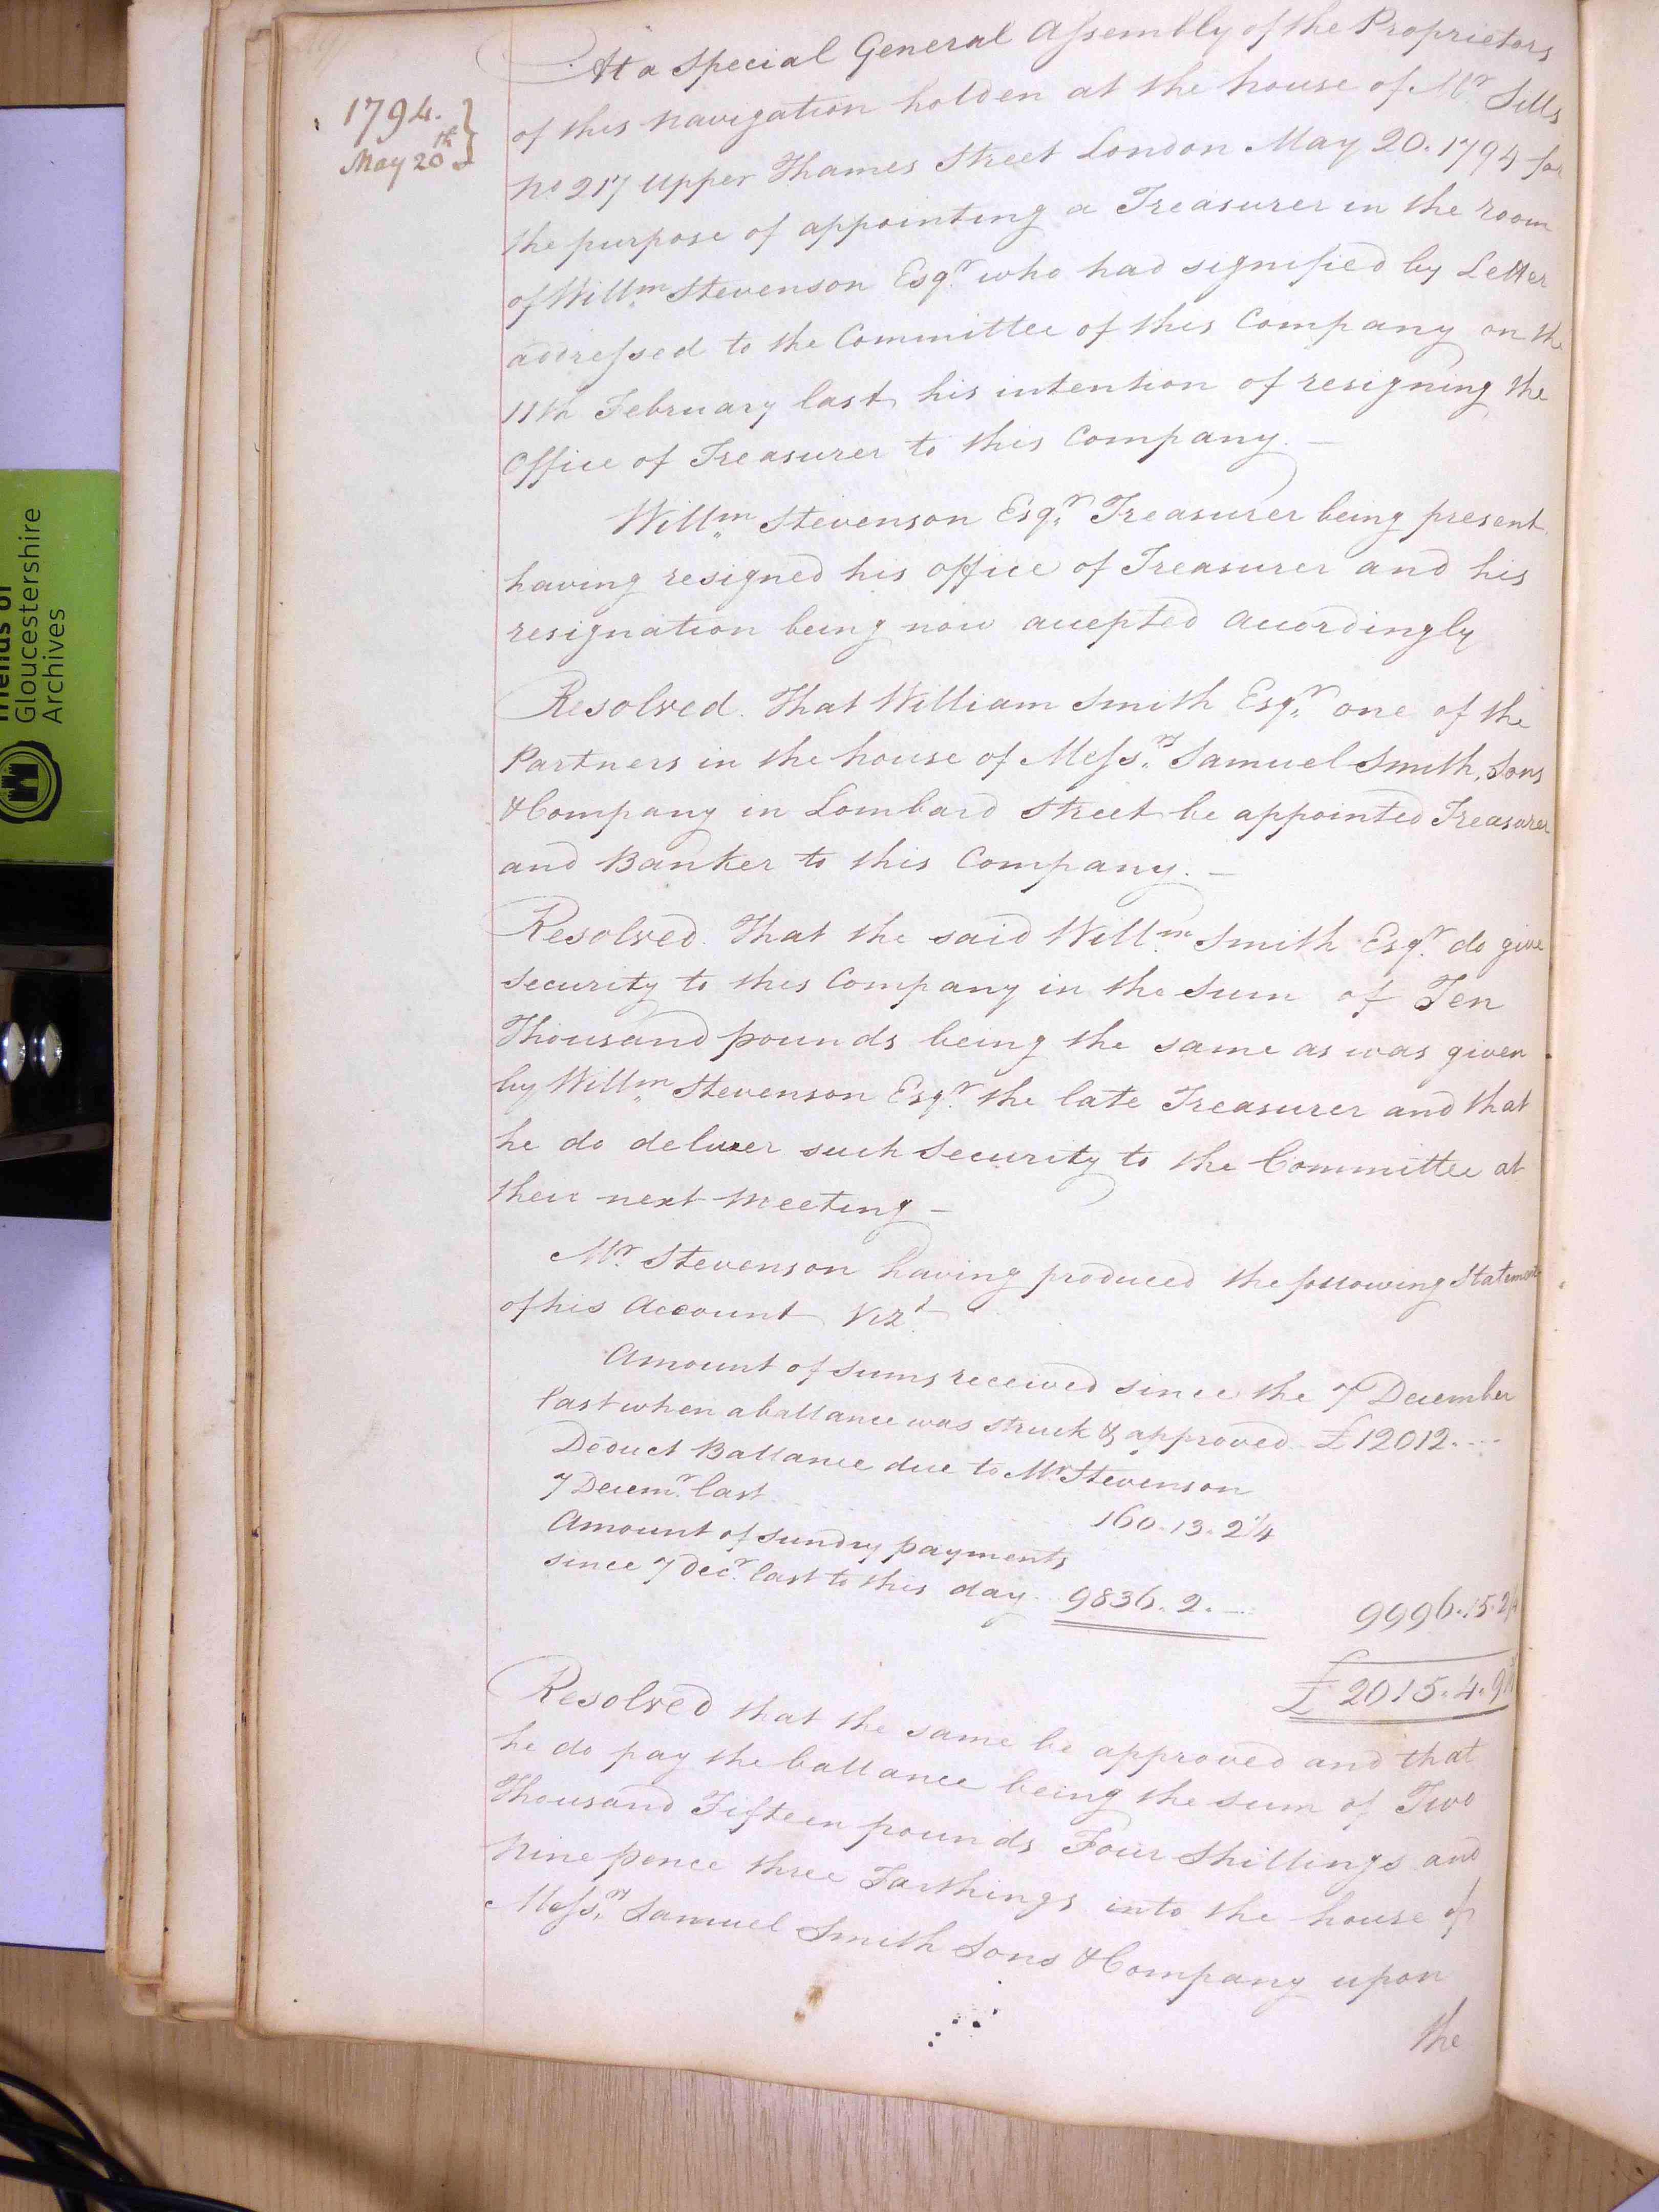 1794.
May 20th
At a Special General Assembly of the Proprietors
of this Navigation holden at the house of Mr. Sills
No 217 Upper Thames Street London May 20. 1794 for
the purpose of appointing a Treasurer in the room
of Willm. Stevenson Esqr. who had signified by Letter
addressed to the Committee of this Company on the
11th February last his intention of resigning the
Office of Treasurer to this Company. —
Willm. Stevenson Esqr. Treasurer being present
having resigned his office of Treasurer and his
resignation being now accepted accordingly
Resolved. That William Smith Esqr. one of the
Partners in the house of Messrs. Samuel Smith, Sons
& Company in Lombard Street be appointed Treasurer
and Banker to this Company. —
Resolved. That the said Willm. Smith Esqr. do give
Security to this Company in the Sum of Ten
Thousand pounds being the same as was given
by Willm. Stevenson Esqr. the late Treasurer and that
he do deliver such Security to the Committee at
their next Meeting —
Mr. Stevenson having produced the following Statement
of his Account Vizt.
Amount of sums received since the 7 December
last when a ballance was struck & approved £12012. . --
Deduct Ballance due to Mr. Stevenson
7 Decemr. last 160. 13. 2 1/4
Amount of sundry payments
since 7 Decr. last to this day. 9836. 2. — 9996. 15. 2 1/4
£ 2015. 4. 9 3/4
Resolved that the same be approved and that
he do pay the ballance being the sum of Two
Thousand Fifteen pounds Four Shillings and
Nine pence three Farthings into the house of
Messrs. Samuel Smith Sons & Company upon
the
Friends of
Gloucestershire
Archives